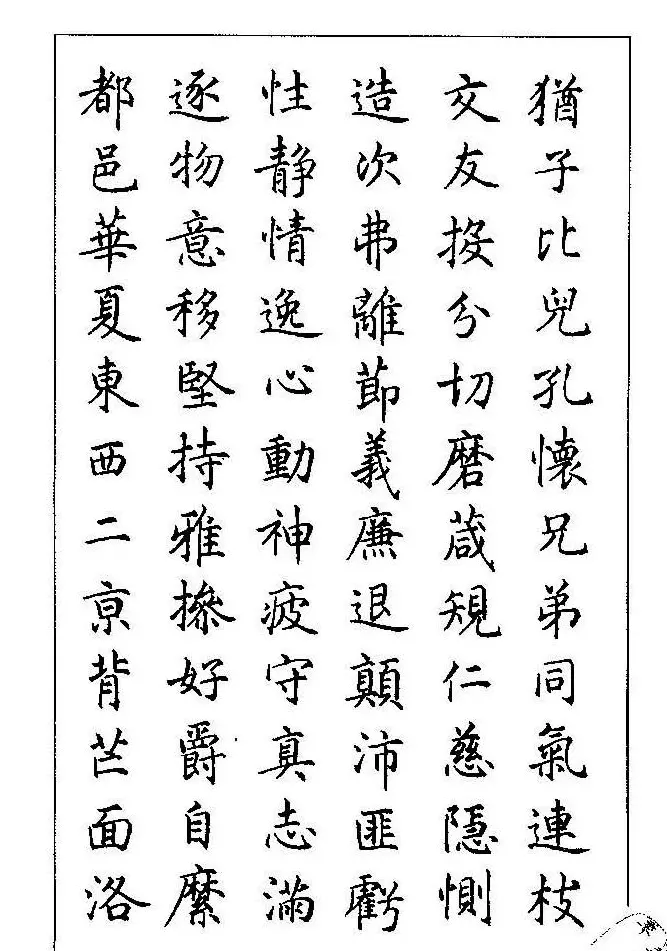 猶子比兒孔懷兄弟同氣連枝
交友投分切磨葴規仁慈隱惻
造次弗離節義廉退顛沛匪虧
性静情逸心動神疲守真志滿
逐物意移堅持雅摻好爵自縻
都邑華夏東西二京背芒面洛